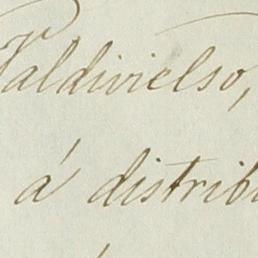 Valdivielso,
á distrib